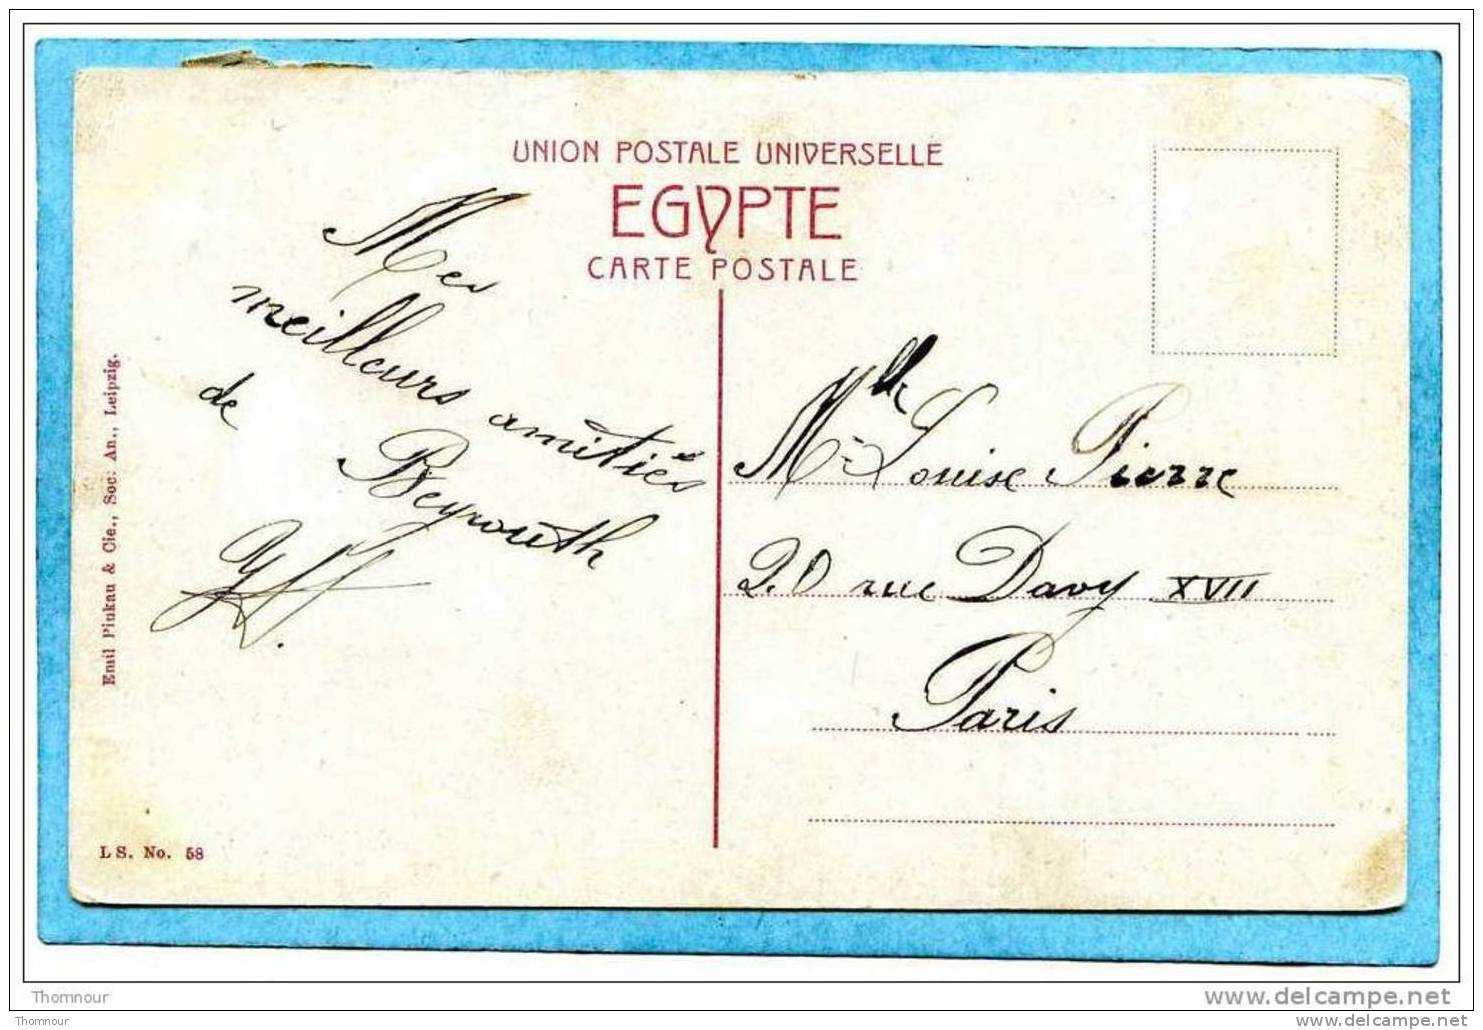 UNION POSTALE UNIVERSELLE
EGYPTE
CARTE POSTALE
Mes
meilleurs amitiés
de Beyrouth
Mlle Louise Pierre
20 rue Davy XVII
Paris
Emil Pinkau & Cie., Soc. An., Leipzig.
L S. No. 58
Thomnour
www.delcampe.net
Thomnour
www.delcampe.net